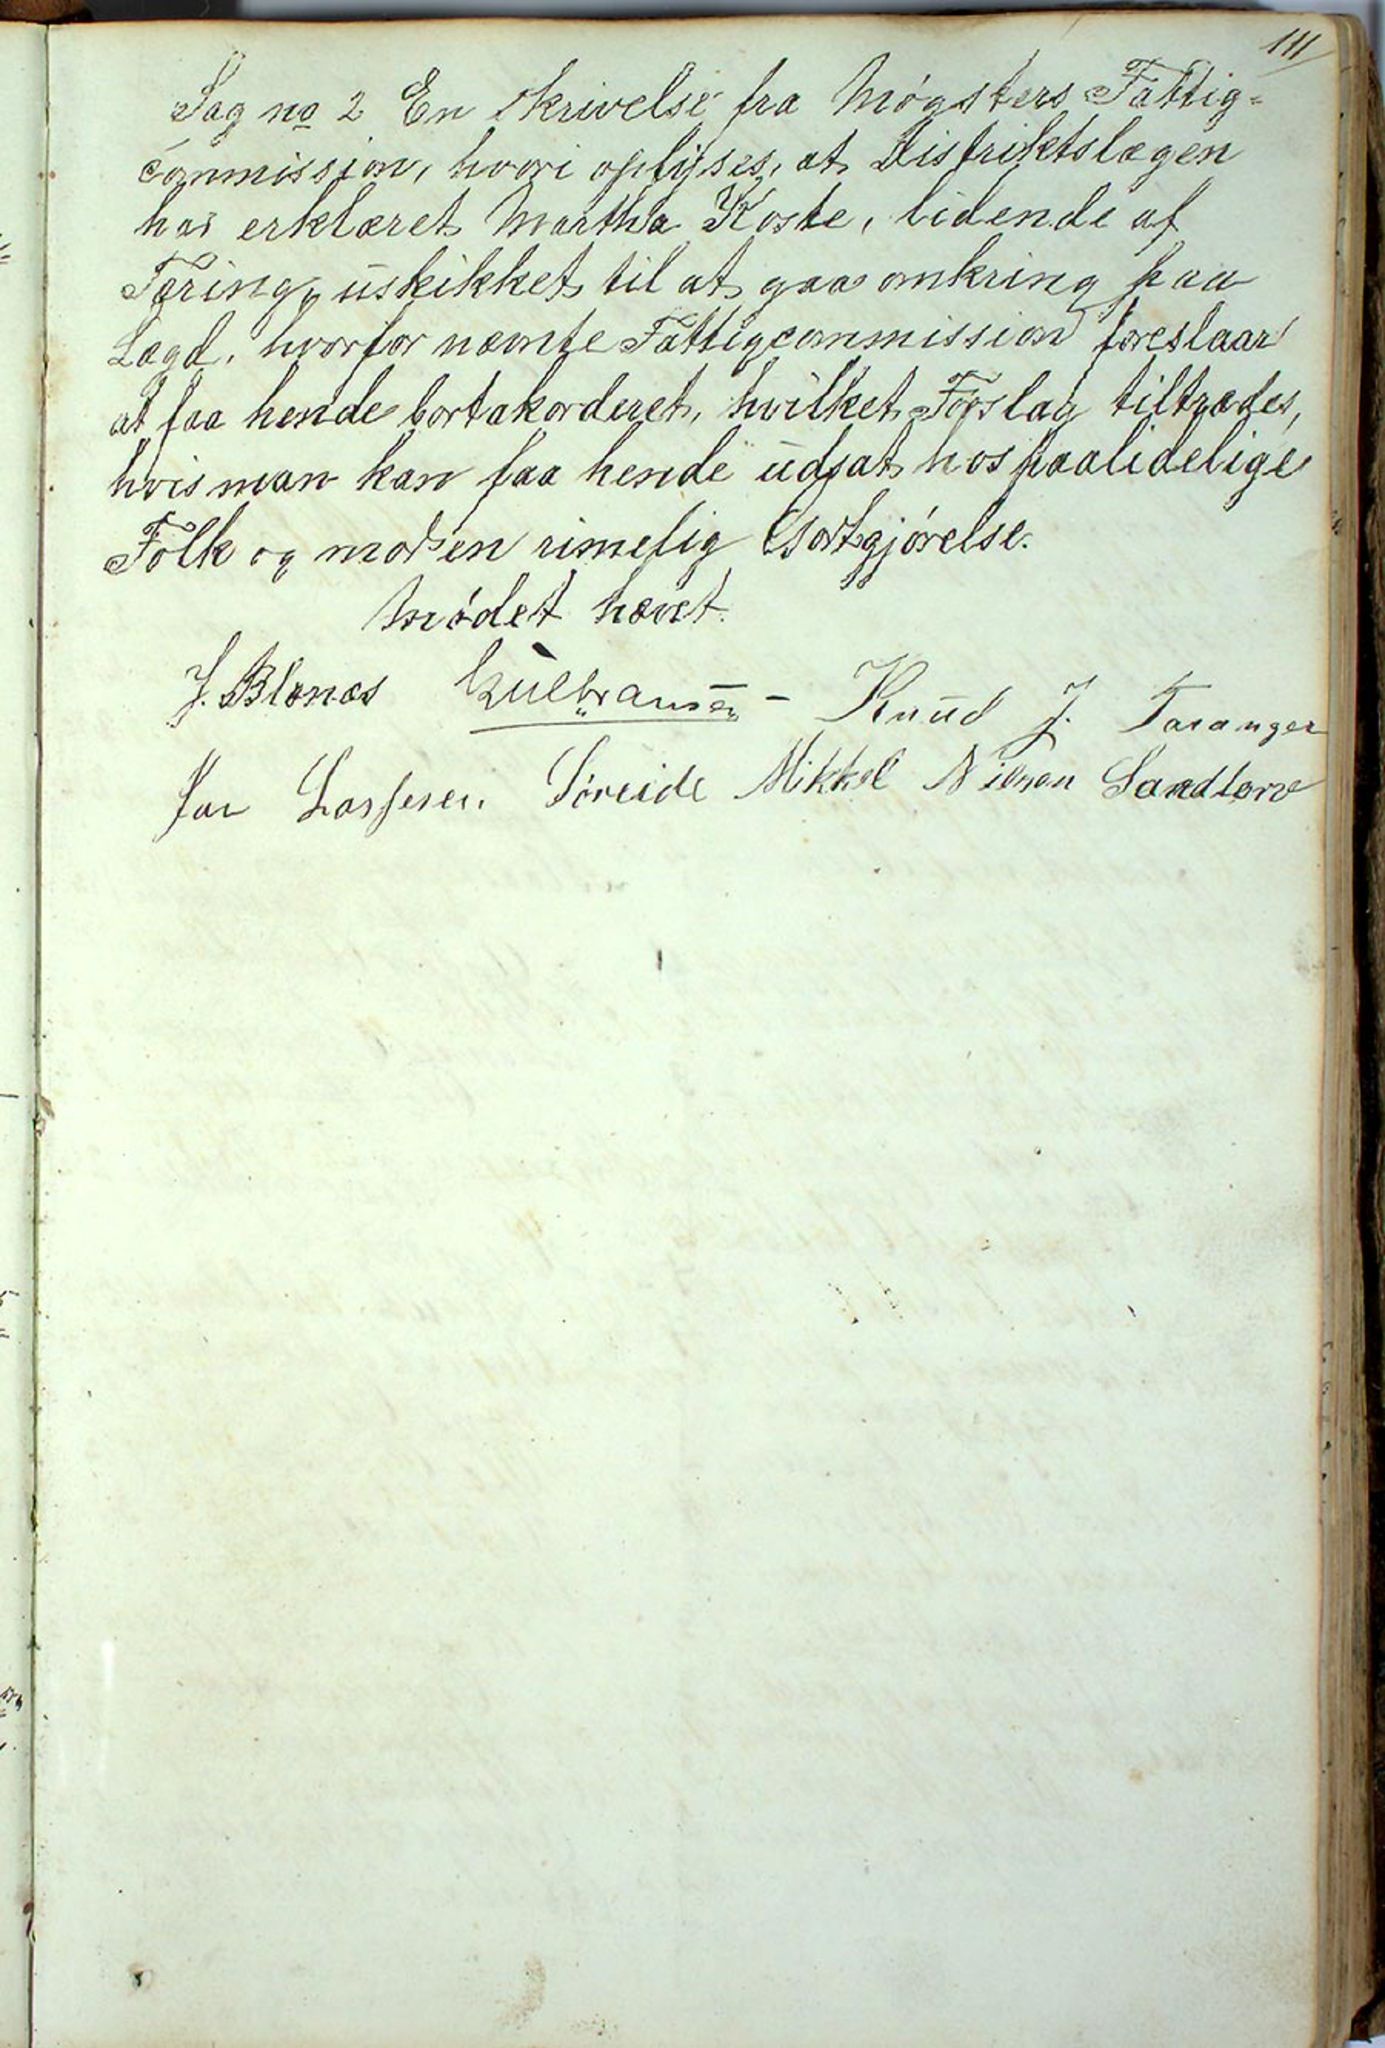 111
Sag no 2 En Skrivelse fra Møgsters Fattig-
commission, hvori oplyses, at Distriktslægen
har erklæret Martha Koste, lidende af
Tæring, uskikket til at gaa omkring paa
Lægd, hvorfor næmte Fattigcommission foreslaar
at faa hende bortakorderet, hvilket Forslag tiltrædes,
hvis man kan faa hende udsat hos paalidelige
Folk og mod en rimelig Godtgjørelse.
Mødet hævet.
J. Blænæs Gulbransen Knud J. Taranger
Jan Lassesen Søreide Mikkel Nilsen Sandtorv